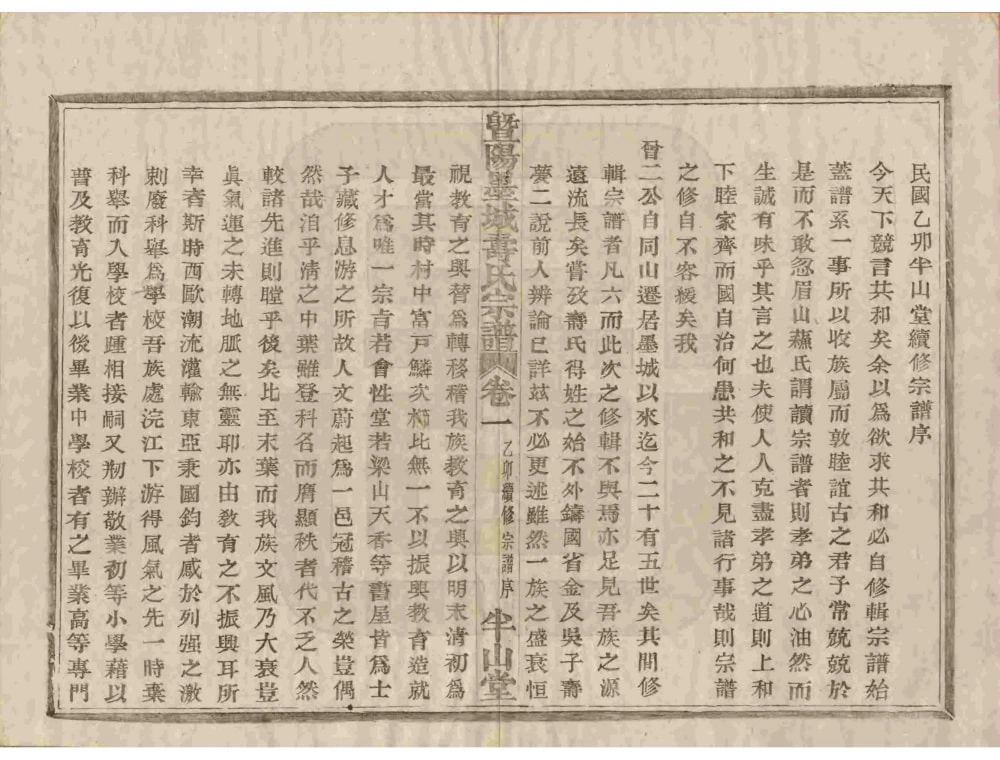 民國乙卯半山堂續修宗譜序
今天下競言共和矣余以爲欲求共和必自修輯宗譜始
蓋譜系一事所以收族屬而敦睦誼古之君子常兢兢於
是而不敢忽眉山蘇氏謂讀宗譜者則孝弟之心油然而
生誠有味乎其言之也夫使人人克盡孝弟之道則上和
下睦家齊而國自治何患共和之不見諸行事哉則宗譜
之修自不容緩矣我
曾二公自同山遷居墨城以來迄今二十有五世矣其間修
輯宗譜者凡六而此次之修輯不與焉亦足見吾族之源
遠流長矣嘗攷壽氏得姓之始不外鑄國省金及吳子壽
夢二說前人辨論已詳茲不必更述雖然一族之盛衰恒
暨陽墨城壽氏宗譜 卷一 乙卯續修宗譜序 半山堂
視教育之興替爲轉移稽我族教育之興以明末清初爲
最當其時村中富戸鱗次櫛比無一不以振興教育造就
人才爲唯一宗㫖若會性堂若梁山天香等書屋皆爲士
子藏修息游之所故人文蔚起爲一邑冠稽古之榮豈偶
然哉洎乎清之中葉雖登科名而膺顯秩者代不乏人然
較諸先進則瞠乎後矣比至末葉而我族文風乃大衰豈
眞氣運之未轉地脈之無靈耶亦由敎育之不振興耳所
幸者斯時西歐潮流灌輸東亞秉國鈞者感於列强之激
刺廢科舉爲學校吾族處浣江下游得風氣之先一時棄
科舉而入學校者踵相接嗣又剏辦敬業初等小學藉以
普及教育光復以後畢業中學校者有之畢業高等專門